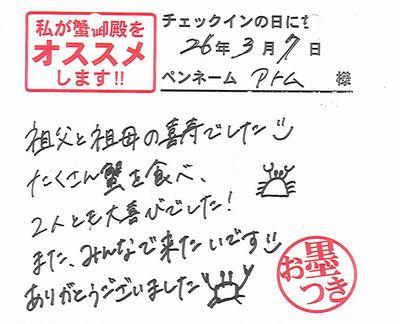 私が蟹御殿を
オススメ
します!!
チェックインの日にち
26年3月7日
ペンネーム アトム 様
祖父と祖母の喜寿でした
たくさん蟹を食べ、
2人とも大喜びでした!
また、みんなで来たいです
ありがとうございました
お墨つき